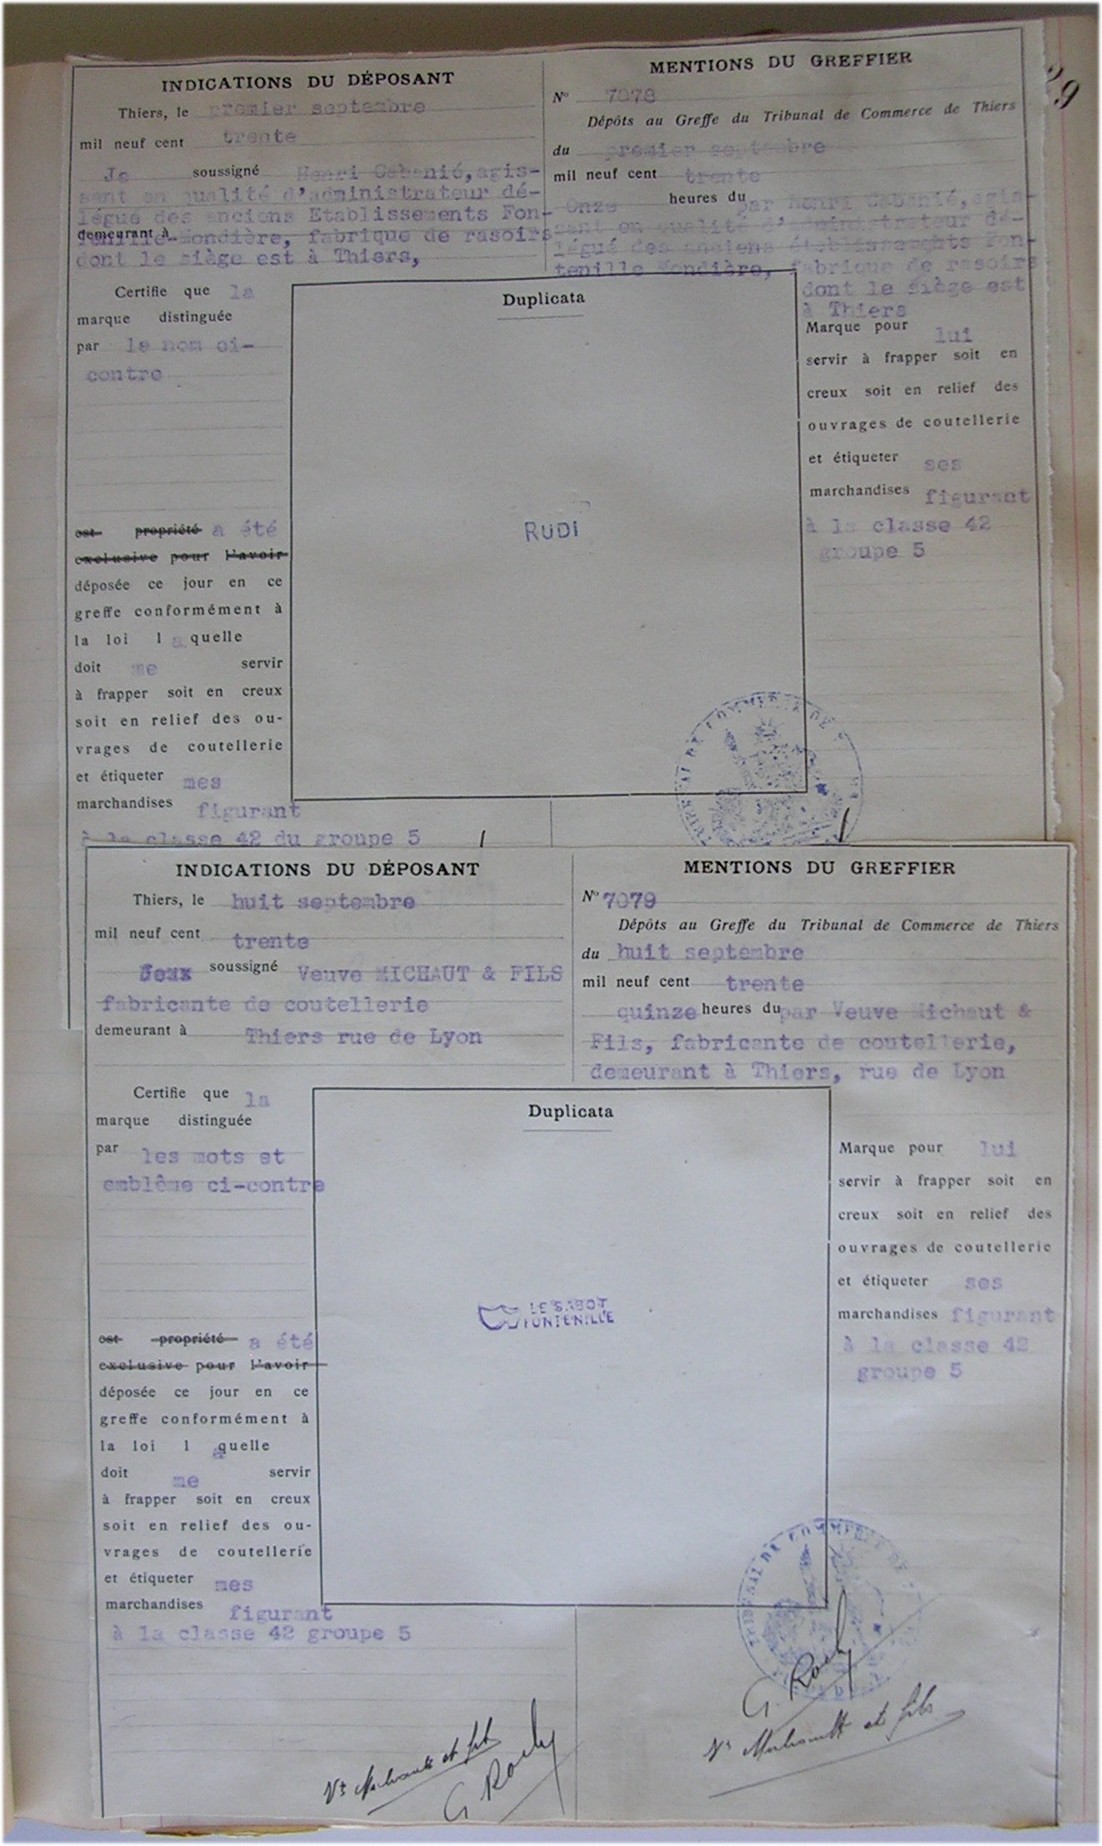 29
INDICATIONS DU DÉPOSANT
Thiers, le premier septembre
mil neuf cent trente
Je soussigné Henri Cabanié, agis-
sant en qualité d'administrateur dé-
légué des anciens Etablissements Fon-
demeurant à tenille-Mondière, fabrique de rasoirs
dont le siège est à Thiers,
Certifie que la
marque distinguée
par le nom ci-
contre
est propriété a été
exclusive pour l'avoir
déposée ce jour en ce
greffe conformément à
la loi laquelle
doit me servir
à frapper soit en creux
soit en relief des ou-
vrages de coutellerie
et étiqueter mes
marchandises figurant
à la classe 42 du groupe 5
Duplicata
RUDI
MENTIONS DU GREFFIER
N° 7078
Dépôts au Greffe du Tribunal de Commerce de Thiers
du premier septembre
mil neuf cent trente
Onze heures du par Henri Cabanié, agis-
sant en qualité d'administrateur dé-
légué des anciens établissements Fon-
tenille Mondière, fabrique de rasoirs
dont le siège est
à Thiers
Marque pour lui
servir à frapper soit en
creux soit en relief des
ouvrages de coutellerie
et étiqueter ses
marchandises figurant
à la classe 42
groupe 5
INDICATIONS DU DÉPOSANT
Thiers, le huit septembre
mil neuf cent trente
soussigné Veuve MICHAUT & FILS
fabricante de coutellerie
demeurant à Thiers rue de Lyon
Certifie que la
marque distinguée
par les mots et
emblême ci-contre
est propriété a été
exclusive pour l'avoir
déposée ce jour en ce
greffe conformément à
la loi laquelle
doit me servir
à frapper soit en creux
soit en relief des ou-
vrages de coutellerie
et étiqueter mes
marchandises figurant
à la classe 42 groupe 5
Duplicata
LE SABOT
FONTENILLE
MENTIONS DU GREFFIER
N° 7079
Dépôts au Greffe du Tribunal de Commerce de Thiers
du huit septembre
mil neuf cent trente
quinze heures du par Veuve Michaut &
Fils, fabricante de coutellerie,
demeurant à Thiers, rue de Lyon
Marque pour lui
servir à frapper soit en
creux soit en relief des
ouvrages de coutellerie
et étiqueter ses
marchandises figurant
à la classe 42
groupe 5
TRIBUNAL DE COMMERCE DE